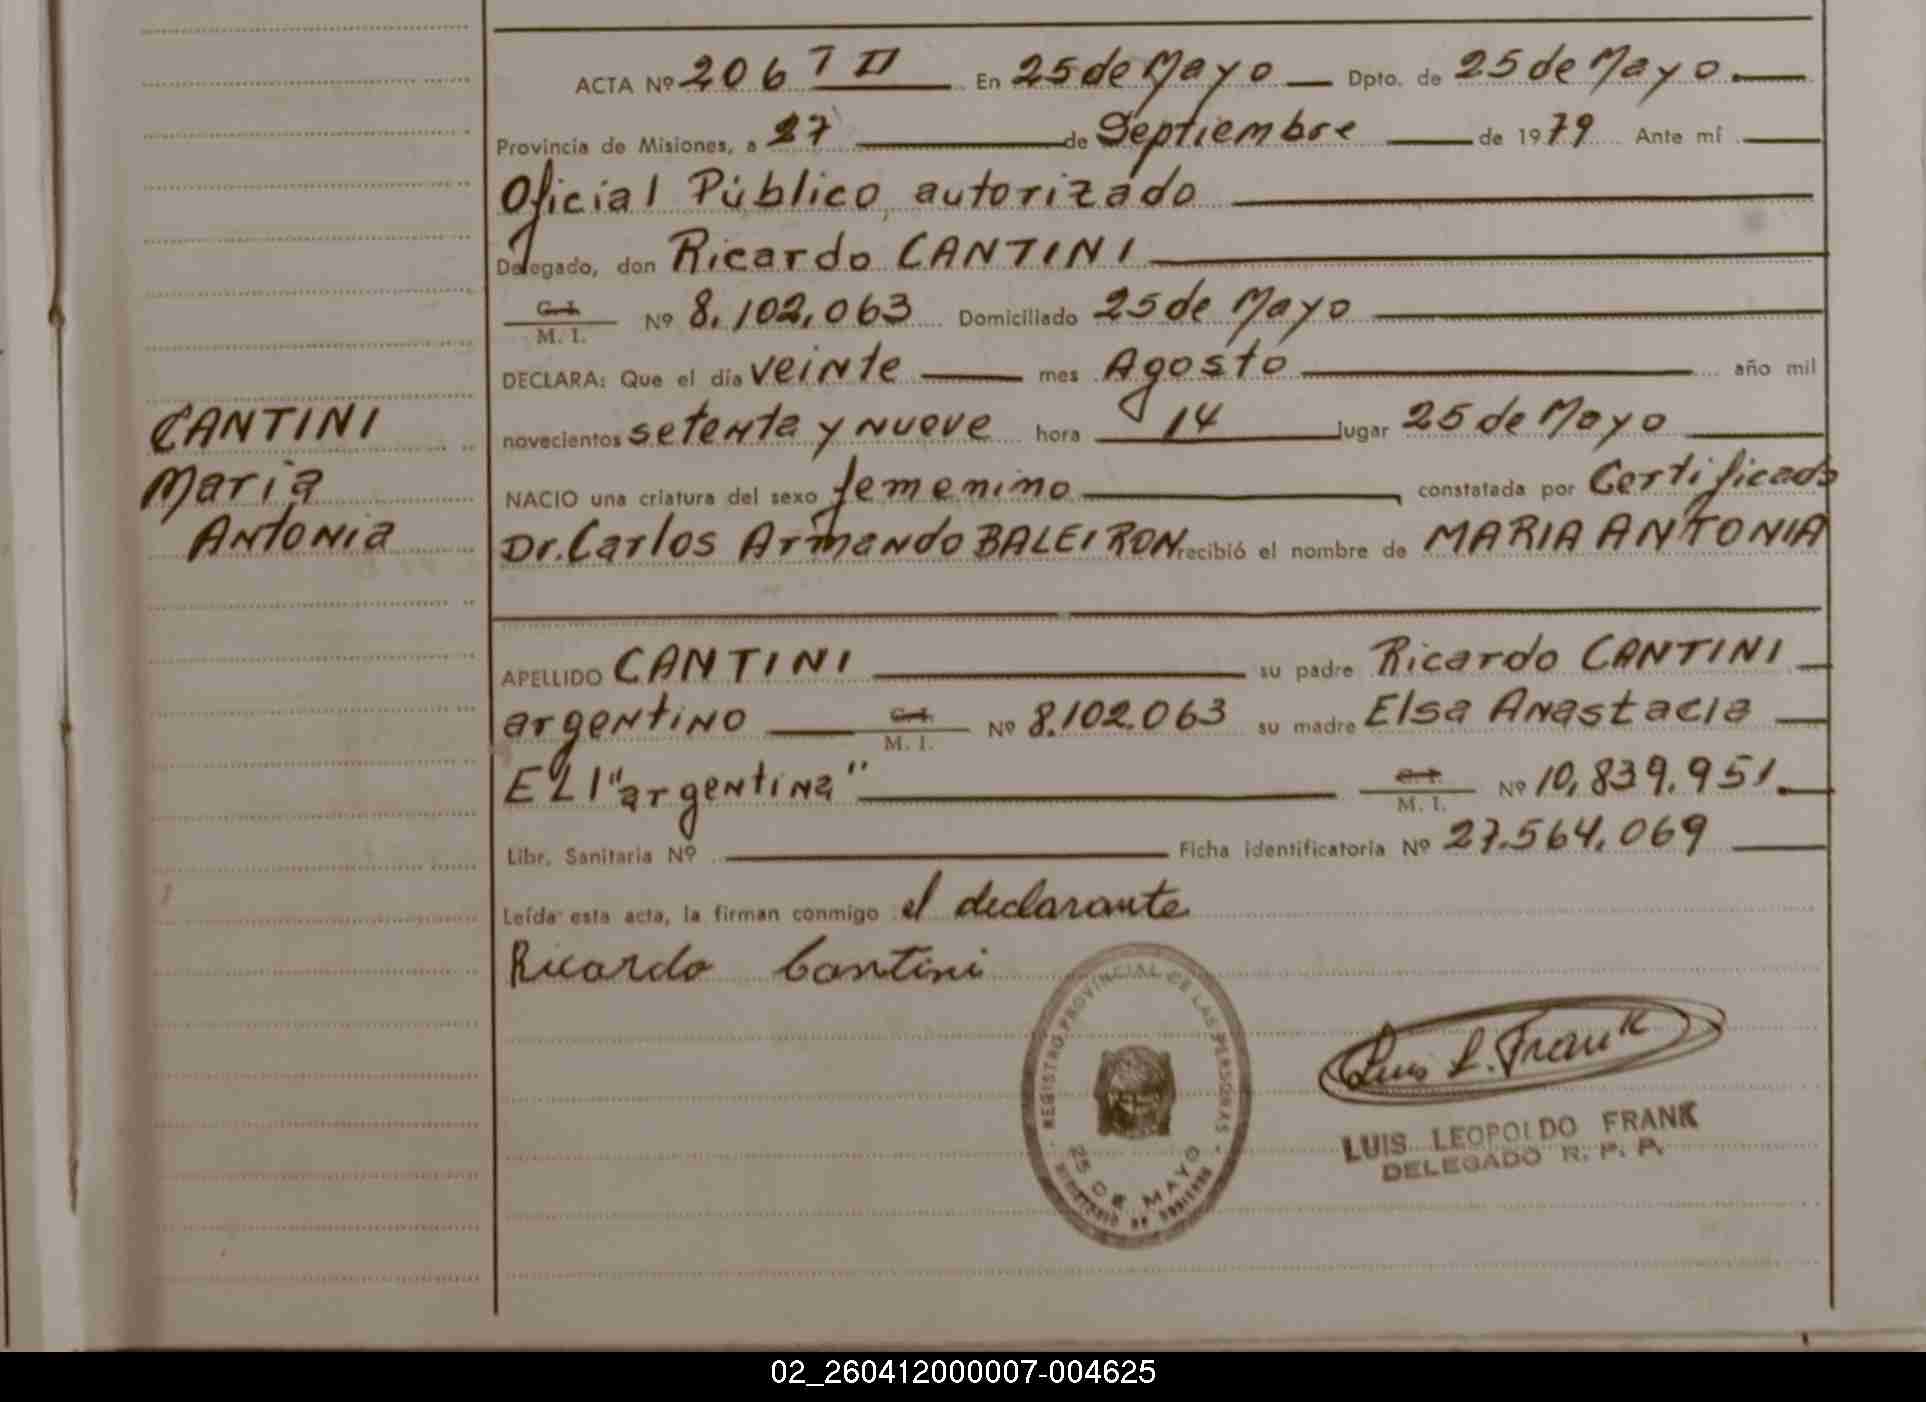 ACTA Nº 206 T II En 25 de Mayo Dpto. de 25 de Mayo
Provincia de Misiones, a 27 de Septiembre de 1979 Ante mí
Oficial Público autorizado
Delegado, don Ricardo CANTINI
C. I.
M. I. Nº 8.102.063 Domiciliado 25 de Mayo
DECLARA: Que el día veinte mes Agosto año mil
novecientos setenta y nueve hora 14 lugar 25 de Mayo
NACIO una criatura del sexo femenino constatada por Certificado
Dr. Carlos Armando BALEIRON recibió el nombre de MARIA ANTONIA
CANTINI
Maria
Antonia
APELLIDO CANTINI su padre Ricardo CANTINI
argentino C. I. M. I. Nº 8.102.063 su madre Elsa Anastacia
ELI "argentina" C. I. M. I. Nº 10.839.951.
Libr. Sanitaria Nº Ficha identificatoria Nº 27.564.069
Leída esta acta, la firman conmigo el declarante
Ricardo Cantini
REGISTRO PROVINCIAL DE LAS PERSONAS
25 DE MAYO
MINISTERIO DE GOBIERNO
Luis L. Frank
LUIS LEOPOLDO FRANK
DELEGADO R. P. P.
02_260412000007-004625